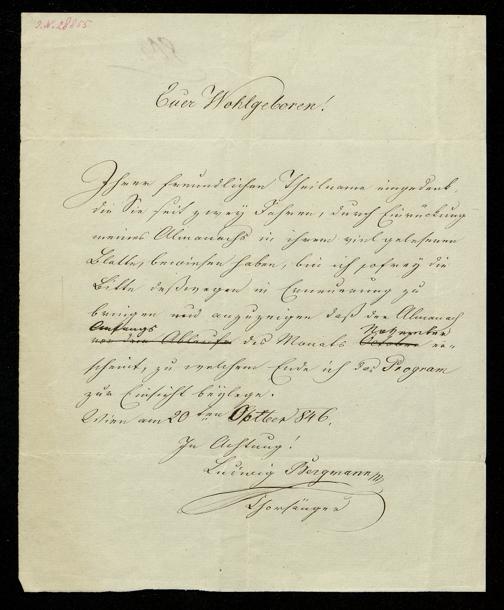 I.N. 28855
Euer Wohlgeboren!
Ihrer freundlichen Theilname eingedenk,
die Sie seit zwey Jahren, durch Einrückung
meines Almanachs in ihrem viel gelesenen
Blatte, bewiesen haben, bin ich so frey die
Bitte deßwegen in Erneuerung zu
bringen und anzuzeigen daß der Almanach
Anfangs November
vor dem Ablaufe des Monats October er-
scheint, zu welchem Ende ich das Program
zur Einsicht beylege.
Wien am 20ten 846.
In Achtung!
Ludwig Bergmann
Chorsänger